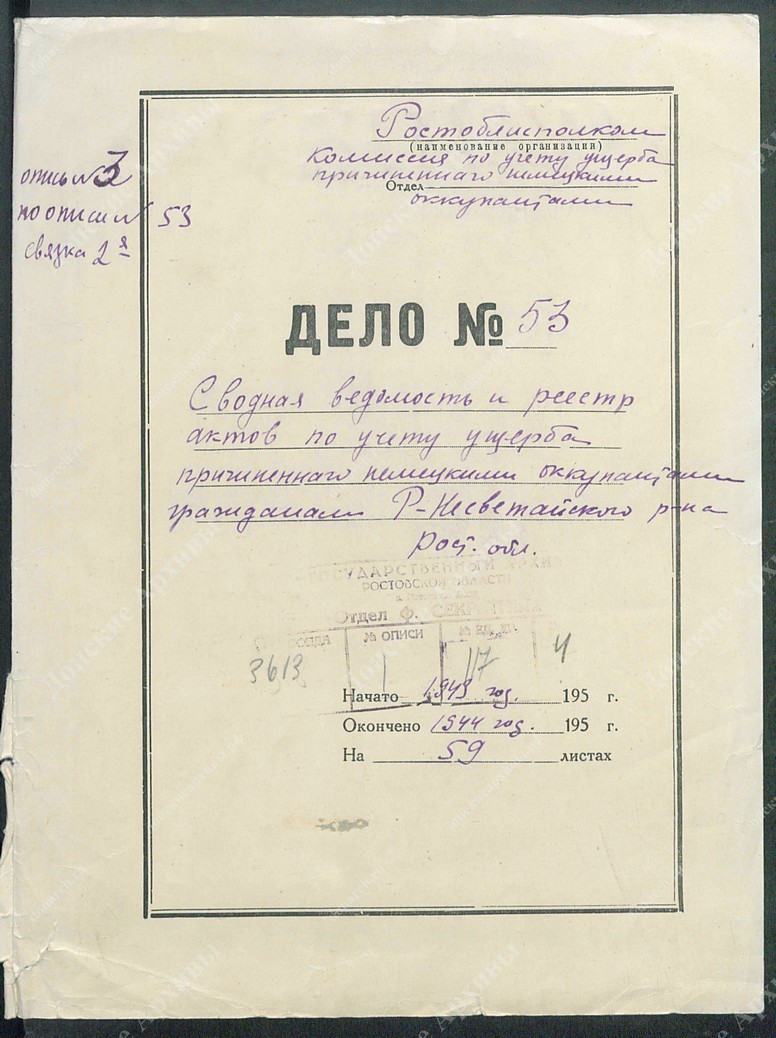 Ростоблисполком
(наименование организации)
Комиссия по учету ущерба
причиненнаго немецкими
Отдел
оккупантами
опись № 3
по описи № 53
связка 2я
ДЕЛО № 53
Сводная ведомость и реестр
актов по учету ущерба
причиненнаго немецкими оккупантами
гражданам Р-Несветайского р-на
Рост. обл.
ГОСУДАРСТВЕННЫЙ АРХИВ
РОСТОВСКОЙ ОБЛАСТИ
Отдел Ф. СЕКРЕТНЫЙ
№ ФОНДА № ОПИСИ № ЕД. ХР.
3613 1 117 4
Начато 1943 год. 195 г.
Окончено 1944 год. 195 г.
На 59 листах